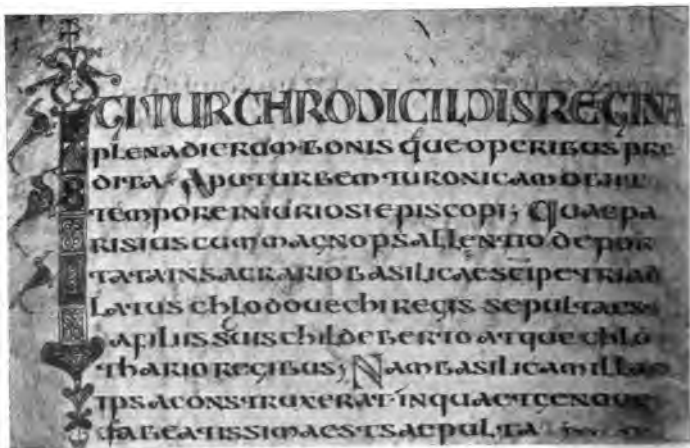 IGITUR CHRODICILDIS REGINA
plena dierum bonisque operibus pre
dita; Aput urbem turonicam obiit
tempore iniuriosi episcopi; Quae pa
risius cum magno psallentio depor
tata in sacrario basilicae sci petri ad
latus chlodouechi regis sepulta est
a filiis suis childeberto atque chlo
thario regibus; Nam basilicam illam
ipsa construxerat in qua et genuue
fa beatissima est saepulta